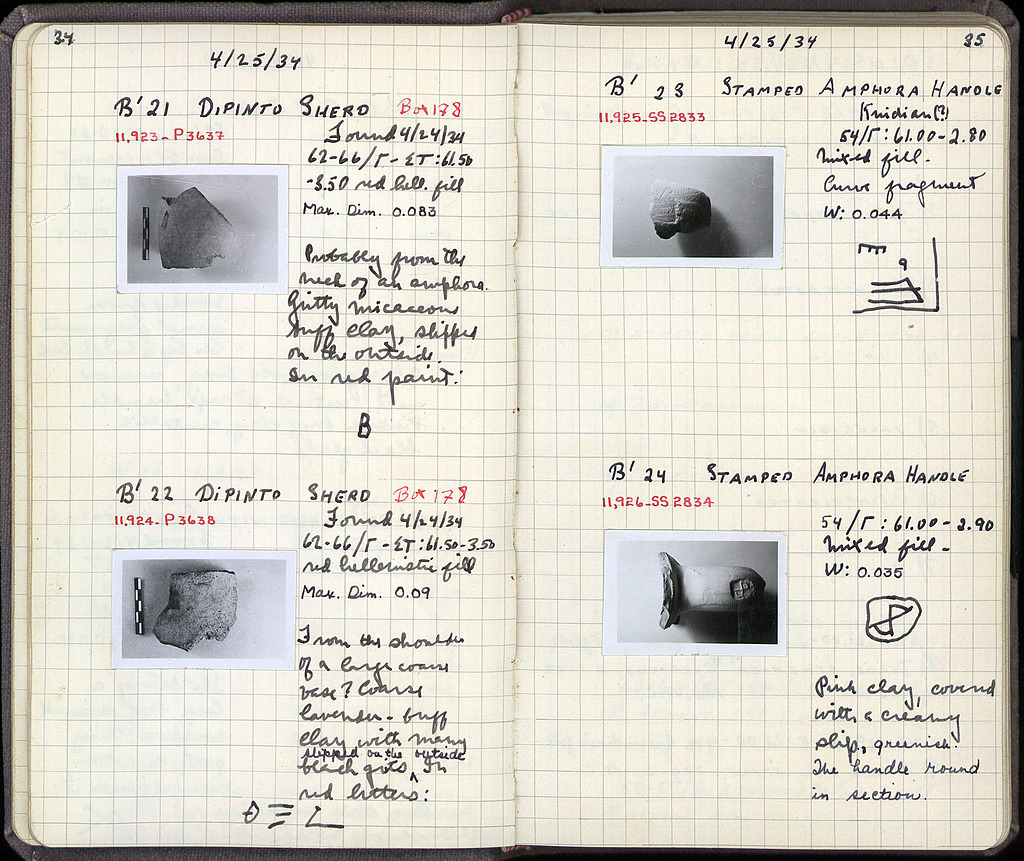 34
4/25/34
B' 21 DIPINTO SHERD Box 178
11,923-P3637
Found 4/24/34
62-66/Γ-ΣΤ:61.50
-3.50 red hell. fill
Max. Dim. 0.083
Probably from the
neck of an amphora.
Gritty micaceous
buff clay, slipped
on the outside.
In red paint:
B
B' 22 DIPINTO SHERD Box 178
11,924-P3638
Found 4/24/34
62-66/Γ-ΣΤ:61.50-3.50
red hellenistic fill
Max. Dim. 0.09
From the shoulder
of a large coarse
vase? Coarse
lavender-buff
clay with many
slipped on the outside
black grits, In
red letters:
35
4/25/34
B' 23 STAMPED AMPHORA HANDLE
11,925-SS2833
Knidian(?)
54/Γ:61.00-2.80
Mixed fill.
Curve fragment
W: 0.044
B' 24 STAMPED AMPHORA HANDLE
11,926-SS2834
54/Γ:61.00-2.90
Mixed fill-
W: 0.035
Pink clay, covered
with a creamy
slip, greenish.
The handle round
in section.